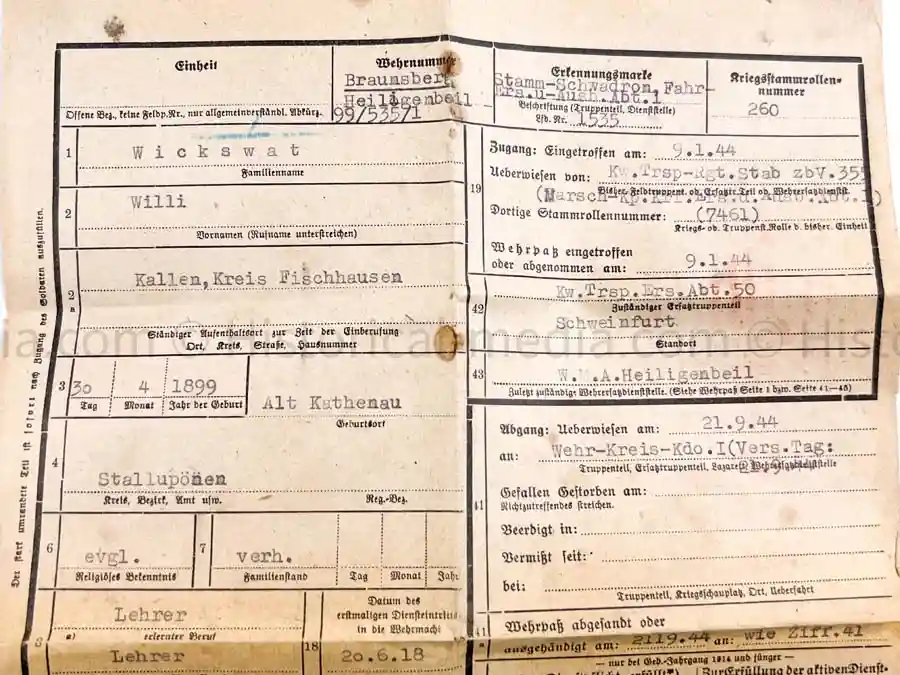 Einheit
Offene Bez., keine Feldp.Nr., nur allgemeinverständl. Abkürz.
Wehrnummer
Braunsberg
Heiligenbeil
99/535/1
Erkennungsmarke
Stamm-Schwadron, Fahr-
Ers.u-Ausb.Abt.1
Beschriftung (Truppenteil, Dienststelle)
Lfd. Nr. 1535
Kriegsstammrollen-
nummer
260
1 Wickswat
Familienname
2 Willi
Vornamen (Rufname unterstreichen)
2a Kallen, Kreis Fischhausen
Ständiger Aufenthaltsort zur Zeit der Einberufung
Ort, Kreis, Straße, Hausnummer
3 30 4 1899
Tag Monat Jahr der Geburt
Alt Kathenau
Geburtsort
4 Stallupönen
Kreis, Bezirk, Amt usw. Reg.-Bez.
6 evgl. 7 verh.
Religiöses Bekenntnis Familienstand Tag Monat Jahr
8 Lehrer
a) erlernter Beruf
Lehrer
18 Datum des
erstmaligen Diensteintritts
in die Wehrmacht
20.6.18
Der stark umrandete Teil ist sofort nach Zugang des Soldaten auszufüllen.
19 Zugang: Eingetroffen am: 9.1.44
Ueberwiesen von: Kw.Trsp-Rgt.Stab zbV.355
Bisher. Feldtruppent. od. Ersatztr. Teil od. Wehrersatzdienst.
(Marsch-Kp.Krf.Ers.u.Ausb.Abt.1)
Dortige Stammrollennummer: (7461)
Kriegs- od. Truppenst.Rolle d. bisher. Einheit
Wehrpaß eingetroffen
oder abgenommen am: 9.1.44
42 Kw.Trsp.Ers.Abt.50
Zuständiger Ersatztruppenteil
Schweinfurt
Standort
43 W.M.A.Heiligenbeil
Zuletzt zuständige Wehrersatzdienststelle. (Siehe Wehrpaß Seite 1 bzw. Seite 41–45)
41 Abgang: Ueberwiesen am: 21.9.44
an: Wehr-Kreis-Kdo.I(Vers.Tag:
Truppenteil, Ersatztruppenteil, Lazarett, Wehrersatzdienststelle
Gefallen Gestorben am:
Nichtzutreffendes streichen.
Beerdigt in:
Vermißt seit:
bei:
Truppenteil, Kriegsschauplatz, Ort, Ueberfahrt
Wehrpaß abgesandt oder
ausgehändigt am: 2119.44 an: wie Ziff.41
— nur bei Geb.-Jahrgang 1914 und jünger —
Zur Erfüllung der aktiven Dienst-